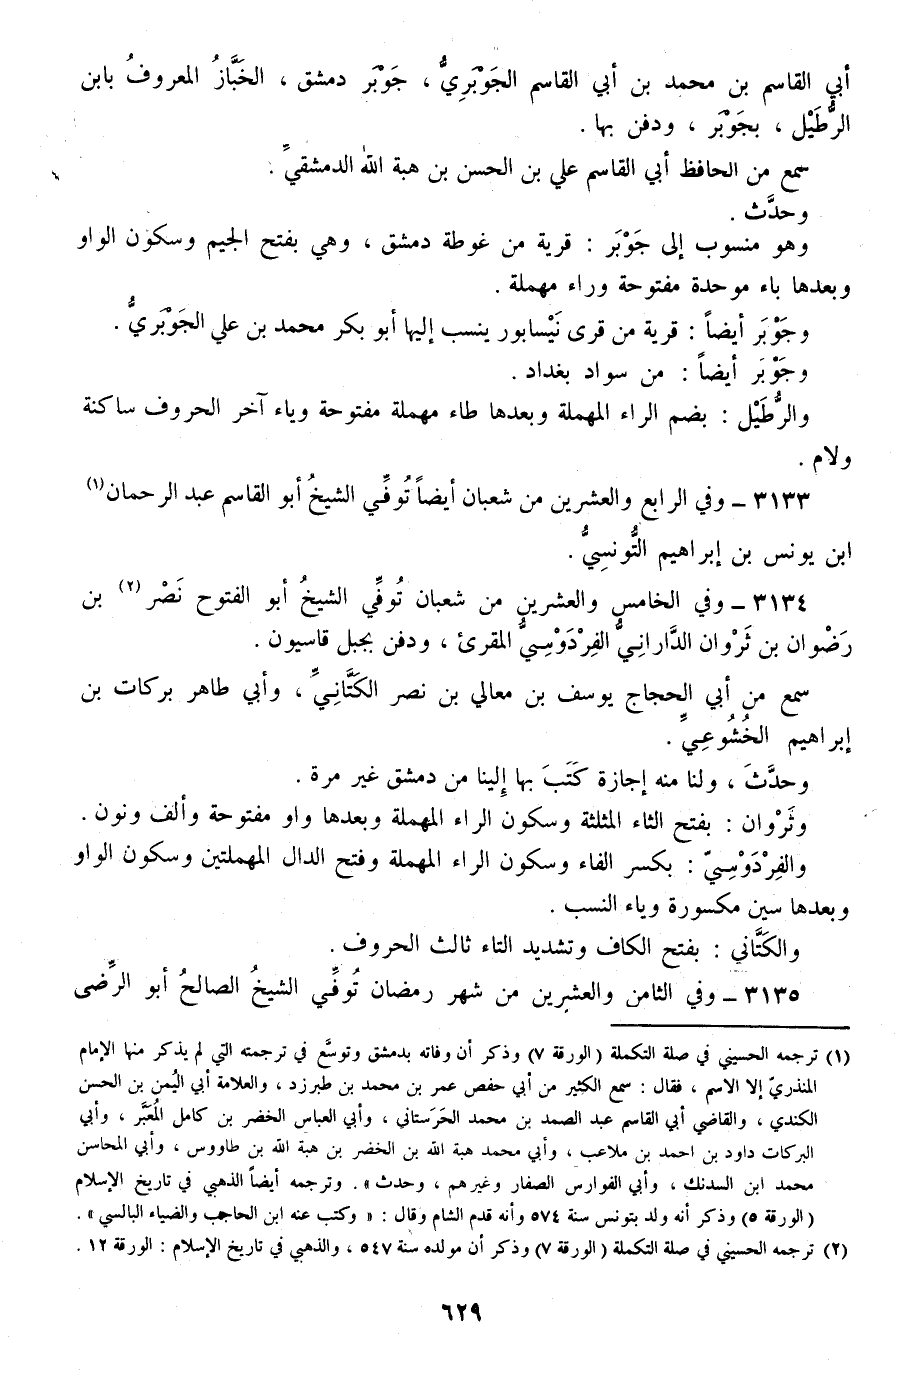 أبي القاسم بن محمد بن أبي القاسم الجَوْبَرِيُّ ، جَوْبَر دمشق ، الخَبَّازُ المعروفُ بابن
الرُّطَيْل ، بجَوْبَر ، ودفن بها .
سمع من الحافظ أبي القاسم علي بن الحسن بن هبة الله الدمشقيِّ .
وحدَّث .
وهو منسوب إلى جَوْبَر : قرية من غوطة دمشق ، وهي بفتح الجيم وسكون الواو
وبعدها باء موحدة مفتوحة وراء مهملة .
وجَوْبَر أيضاً : قرية من قرى نَيْسابور ينسب إليها أبو بكر محمد بن علي الجَوْبَريُّ .
وجَوْبَر أيضاً : من سواد بغداد .
والرُّطَيْل : بضم الراء المهملة وبعدها طاء مهملة مفتوحة وياء آخر الحروف ساكنة
ولام .
٣١٣٣ ــ وفي الرابع والعشرين من شعبان أيضاً تُوفِّي الشيخُ أبو القاسم عبد الرحمان(١)
ابن يونس بن إبراهيم التُّونسِيُّ .
٣١٣٤ ــ وفي الخامس والعشرين من شعبان تُوفِّي الشيخُ أبو الفتوح نَصْر(٢) بن
رَضْوان بن ثَرْوان الدَّارانِيُّ الفِرْدَوْسِيُّ المقرئ ، ودفن بجبل قاسيون .
سمع من أبي الحجاج يوسف بن معالي بن نصر الكَتَّانِيِّ ، وأبي طاهر بركات بن
إبراهيم الخُشُوعِيِّ .
وحدَّثَ ، ولنا منه إجازة كَتَبَ بها إلينا من دمشق غير مرة .
وثَرْوان : بفتح الثاء المثلثة وسكون الراء المهملة وبعدها واو مفتوحة وألف ونون .
والفِرْدَوْسِيّ : بكسر الفاء وسكون الراء المهملة وفتح الدال المهملتين وسكون الواو
وبعدها سين مكسورة وياء النسب .
والكَتَّاني : بفتح الكاف وتشديد التاء ثالث الحروف .
٣١٣٥ ــ وفي الثامن والعشرين من شهر رمضان تُوفِّي الشيخُ الصالحُ أبو الرِّضى
(١) ترجمه الحسيني في صلة التكملة (الورقة ٧) وذكر أن وفاته بدمشق وتوسَّع في ترجمته التي لم يذكر منها الإمام
المنذريّ إلا الاسم ، فقال : سمع الكثير من أبي حفص عمر بن محمد بن طبرزد ، والعلامة أبي اليُمن بن الحسن
الكندي ، والقاضي أبي القاسم عبد الصمد بن محمد الحَرَستاني ، وأبي العباس الخضر بن كامل المُعَبَّر ، وأبي
البركات داود بن احمد بن ملاعب ، وأبي محمد هبة الله بن الخضر بن هبة الله بن طاووس ، وأبي المحاسن
محمد ابن السدنك ، وأبي الفوارس الصفار وغيرهم ، وحدث » . وترجمه أيضاً الذهبي في تاريخ الإسلام
(الورقة ٥) وذكر أنه ولد بتونس سنة ٥٧٤ وأنه قدم الشام وقال : « وكتب عنه ابن الحاجب والضياء البالسي » .
(٢) ترجمه الحسيني في صلة التكملة (الورقة ٧) وذكر أن مولده سنة ٥٤٧ ، والذهبي في تاريخ الإسلام : الورقة ١٢ .
٦٢٩